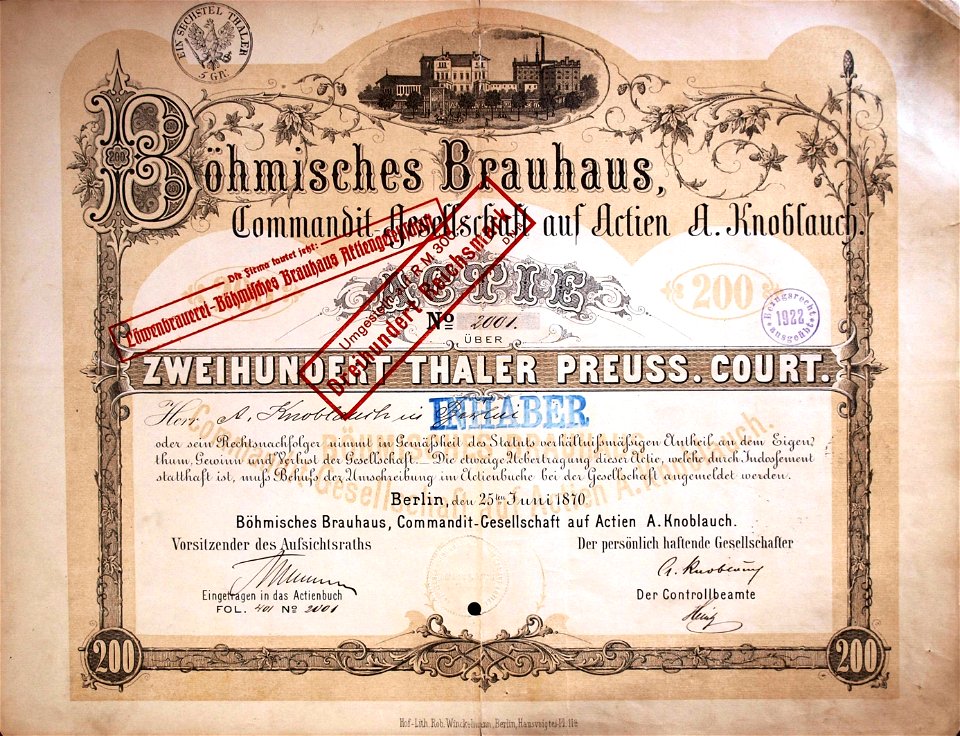 EIN SECHSTEL THALER
5 GR.
200
Böhmisches Brauhaus,
Commandit-Gesellschaft auf Actien A. Knoblauch.
Die Firma lautet jetzt:
Löwenbrauerei-Böhmisches Brauhaus Aktiengesellschaft
Umgestellt auf RM 300.
Dreihundert Reichsmark
200
ACTIE
200
No 2001.
ÜBER
Bezugsrecht
1922
ausgeübt
ZWEIHUNDERT THALER PREUSS. COURT.
Herr A. Knoblauch in Berlin
INHABER
oder sein Rechtsnachfolger nimmt in Gemäßheit des Statuts verhältnißmässigen Antheil an dem Eigen-
thum, Gewinn und Verlust der Gesellschaft. Die etwaige Uebertragung dieser Actie, welche durch Indossement
statthaft ist, muß Behufs der Umschreibung im Actienbuche bei der Gesellschaft angemeldet werden.
Berlin, den 25ten Juni 1870.
Böhmisches Brauhaus, Commandit-Gesellschaft auf Actien A. Knoblauch.
Vorsitzender des Aufsichtsraths
Der persönlich haftende Gesellschafter
A. Knoblauch
Eingetragen in das Actienbuch
FOL. 401 No 2001
Der Controllbeamte
200
200
Hof-Lith. Rob. Winckelmann, Berlin, Hausvoigtei-Pl. 11a